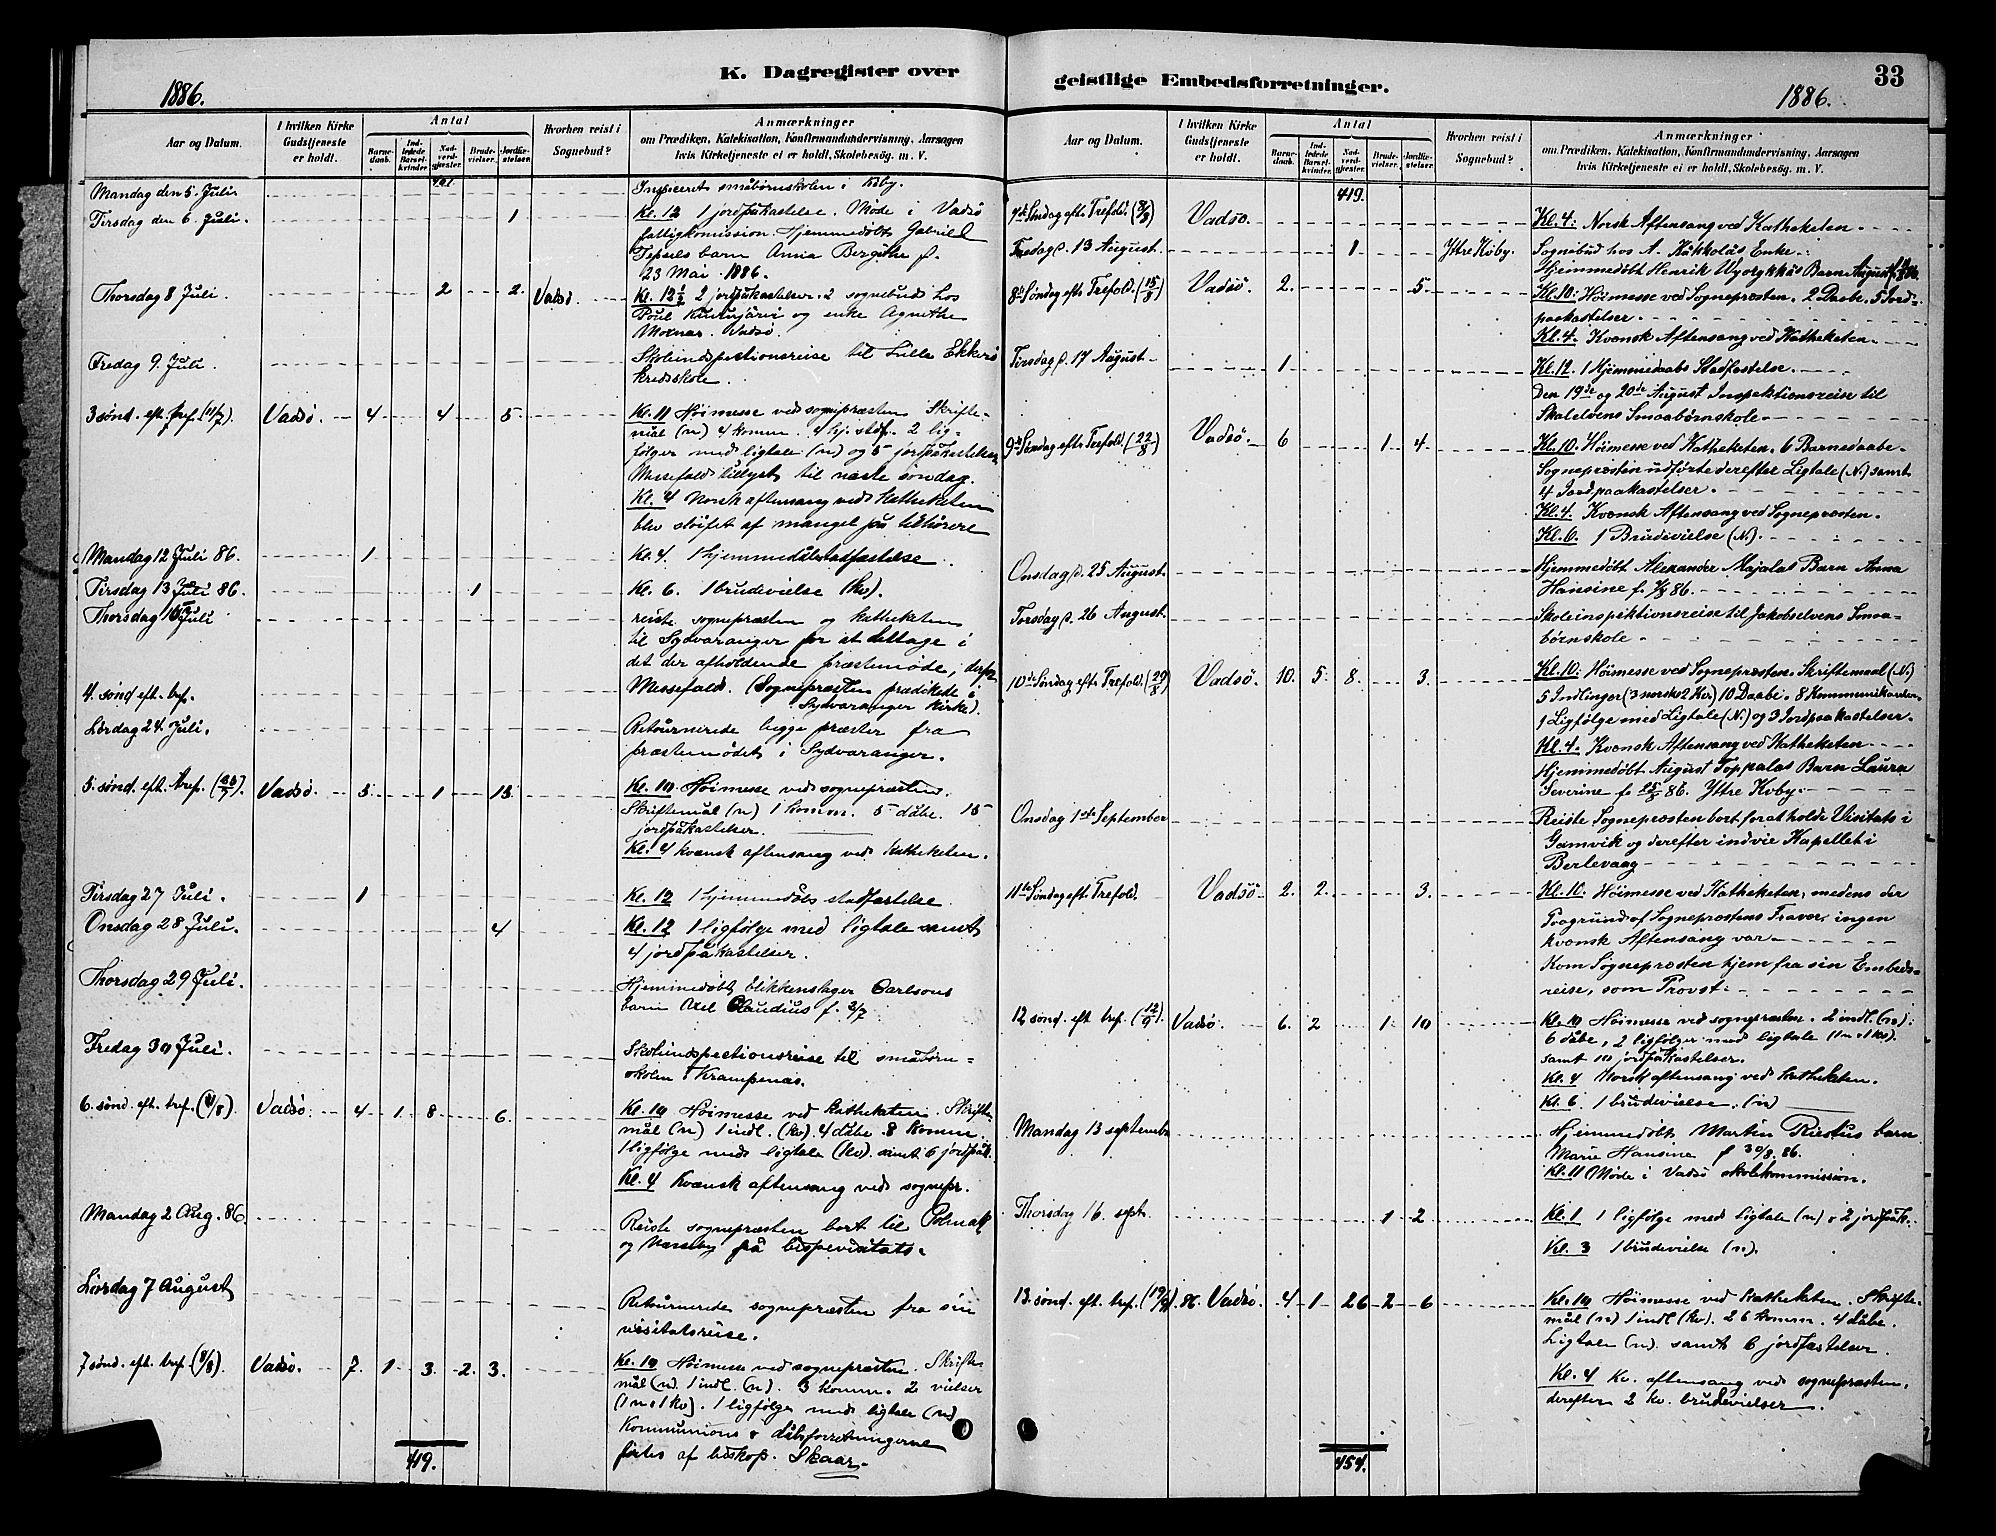 K. Dagregister over
1886.
Aar og Datum.
I hvilken Kirke Gudstjeneste er holdt.
Antal
Barnedaab.
Indledede Barselkvinder.
Nadverdgjester.
Brudevielser.
Jordfæstelser.
Hvorhen reist i Sognebud?
Anmærkninger
om Prædiken, Katekisation, Konfirmandundervisning, Aarsagen
hvis Kirketjeneste ei er holdt, Skolebesøg. m. V.
401
Mandag den 5. Juli. Inspiceret småbørnskolen i Kiby.
Tirsdag den 6. Juli. 1 Kl. 12 1 jordpåkastelse. Møde i Vadsø
fattigkomission. Hjemmedøbt Gabriel
barn Anna Bergithe f.
23 Mai 1886.
Thorsdag 8 Juli. 2 2. Vadsø. Kl. 12½ 2 jordpåkastelser. 2 sognebuds hos
Poul og enke Agnethe
Vadsø
Fredag 9. Juli. Skoleindspectionsreise til Lille Ekkerø
kredsskole.
3 sønd. eft. tref. (11/7). Vadsø. 4 4 5 Kl. 11 Høimesse ved sognepræsten. Skrifte-
mål (n) 4 komm. 4 hj. stdf. 2 lig-
følger med ligtale (n) og 5 jordpåkastelser.
Messefald tillyst til næste søndag.
Kl. 4 Norsk aftensang ved katheketen
blev sløifet af mangel på tilhørere
Mandag 12 Juli 86. 1 Kl. 4. 1 hjemmedåbstadfæstelse.
Tirsdag 13 Juli 86. 1 Kl. 6. 1 brudevielse (kv).
Thorsdag 15 Juli reiste sognepræsten og katheketen
til Sydvaranger for at deltage i
det der afholdende præstemøde, derfor
4. sønd. eft. tref. Messefald. (Sognepræsten prædikede i
Sydvaranger kirke).
Lørdag 24 Juli. Retournerede begge præster fra
præstemødet i Sydvaranger.
5. sønd. eft. tref. (25/7). Vadsø. 5 1 15. Kl. 10 Høimesse ved sognepræsten.
Skriftemål (n) 1 komm. 5 dåbe. 15
jordpåkastelser.
Kl. 4 kvænsk aftensang ved katheketen.
Tirsdag 27 Juli. 1 Kl. 12 1 hjemmedåbs stadfæstelse
Onsdag 28 Juli. 4 Kl. 12 1 ligfølge med ligtale samt
4 jordpåkastelser.
Thorsdag 29 Juli. Hjemmedøbt blikkenslager Carlsons
barn Axel Claudius f. 2/7
Fredag 30 Juli. Skoleindspectionsreise til småbørn-
skolen i Krampenæs.
6. sønd. eft. tref. (1/8). Vadsø. 4 1 8 6. Kl. 10 Høimesse ved katheketen. Skrifte-
mål (n) 1 indl. (kv). 4 dåbe. 8 komm.
1 ligfølge med ligtale (kv). samt 6 jordpåk.
Kl. 4 Kvænsk aftensang ved sognepr.
Mandag 2 Aug. 86 Reiste sognepræsten bort til Polmak
og Næsseby på bispevisitats.
Lørdag 7 August Retournerede sognepræsten fra sin
visitatsreise.
7 sønd. eft. tref. (8/8). Vadsø. 7. 1 3. 2. 3. Kl. 10 Høimesse ved sognepræsten. Skrifte-
mål (n). 1 indl. (n). 3 komm. 2 vielser
(1 n. 1 kv). 1 ligfølge med ligtale (n)
Kommunions & dåbsforretningerne
førtes af biskop. Skaar.
419.
geistlige Embedsforretninger.
33
1886.
Aar og Datum.
I hvilken Kirke Gudstjeneste er holdt.
Antal
Barnedaab.
Indledede Barselkvinder.
Nadverdgjester.
Brudevielser.
Jordfæstelser.
Hvorhen reist i Sognebud?
Anmærkninger
om Prædiken, Katekisation, Konfirmandundervisning, Aarsagen
hvis Kirketjeneste ei er holdt, Skolebesøg. m. V.
419.
7de Søndag efter Trefold. (8/8) Vadsø. Kl. 4. Norsk Aftensang ved Katheketen.
Fredag d. 13 August. 1 Yttre Kiby. Sognebud hos A. Enke.
Hjemmedøbt Henrik Barn August
8de Søndag efter Trefold. (15/8) Vadsø. 2. 5. Kl. 10. Høimesse ved Sognepræsten. 2 Daabe. 5 Jord-
paakastelser.
Kl. 4. Kvænsk Aftensang ved Katheketen.
Tirsdag d. 17 August. 1 Kl. 12. 1 Hjemmedaabs Stadfæstelse.
Den 19de og 20de August Inspektionsreise til
Skalelvens Smaabørnskole.
9de Søndag efter Trefold. (22/8) Vadsø. 6 1 4. Kl. 10. Høimesse ved Katheketen. 6 Barnedaabe.
Sognepræsten udførte derefter Ligtale (N.) samt
4 Jordpaakastelser.
Kl. 4. Kvænsk Aftensang ved Sognepræsten.
Kl. 6. 1 Brudevielse (N.)
Onsdag d. 25 August. Hjemmedøbt Alexander Majalas Barn Anna
Hansine f. 86.
Torsdag d. 26 August. Skoleinspektionsreise til Jakobselvens Smaa-
børnskole.
10de Søndag efter Trefold. (29/8) Vadsø. 10. 5 8. 3. Kl. 10. Høimesse ved Sognepræsten. Skriftemaal (N.)
5 Indlinger (3 norske 2 Kv.) 10 Daabe. 8 Kommunikanter.
1 Ligfølge med Ligtale (N.) og 3 Jordpaakastelser.
Kl. 4. Kvænsk Aftensang ved Katheketen.
Hjemmedøbt August Toppalas Barn Laura
Severine f. 25/8 86. Yttre Kiby.
Onsdag 1ste September Reiste Sognepræsten bort for at holde Visitats i
Gamvik og derefter indvie Kapellet i
Berlevaag
11te Søndag eft. Trefold. Vadsø. 2. 2. 3. Kl. 10. Høimesse ved Katheketen, medens der
Paagrund af Sognepræstens Fravær, ingen
kvænsk Aftensang var.
Kom Sognepræsten hjem fra sin Embeds-
reise, som Provst.
12 sønd. eft tref. (12/9). Vadsø. 6. 2 1. 10 Kl. 10 Høimesse ved sognepræsten. 2 indl. (n).
6 dåbe, 2 ligfølger med ligtale (1 n. 1 kv).
samt 10 jordpåkastelser.
Kl. 4 Norsk aftensang ved katheketen.
Kl. 6 1 brudevielse. (n)
Mandag 13 septembr Hjemmedøbt Martin barn
Marie Hansine f 30/8. 86.
Kl. 11 Møde i Vadsø skolekommission.
Thorsdag 16. sept. 1 2 Kl. 1 1 ligfølge med ligtale (n) & 2 jordpåk.
Kl. 3 1 brudevielse (n).
13. sønd. eft. tref. (19/9). 86. Vadsø. 4 1 26 2 6 Kl. 10 Høimesse ved katheketen. Skrifte-
mål (n) 1 indl (kv). 26 komm. 4 dåbe.
Ligtale (n). samt 6 jordfæstelser.
Kl. 4 Kv. aftensang ved sognepræsten.
derefter 2 kv. brudevielser.
454.